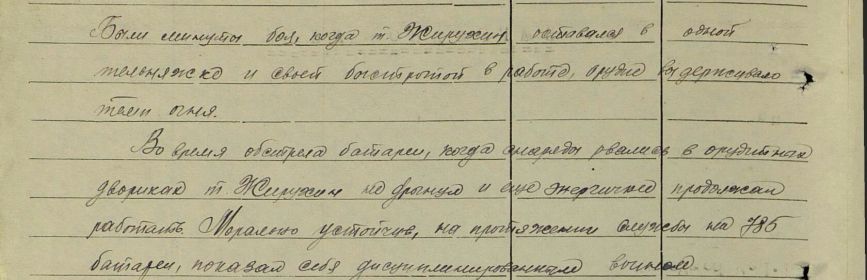 Были минуты боя, когда т. Жирухин оставался в одной
тельняжке и своей быстротой в работе, орудие выдержувало
темп огня.
Во время обстрела батареи, когда снаряды рвались в орудитных
двориках т. Жирухин не дрынул и еще энергичнее продолжал
работать. Морально устойчив, на протяжении службы на 785
батареи, показал себя дисциплинированным воином